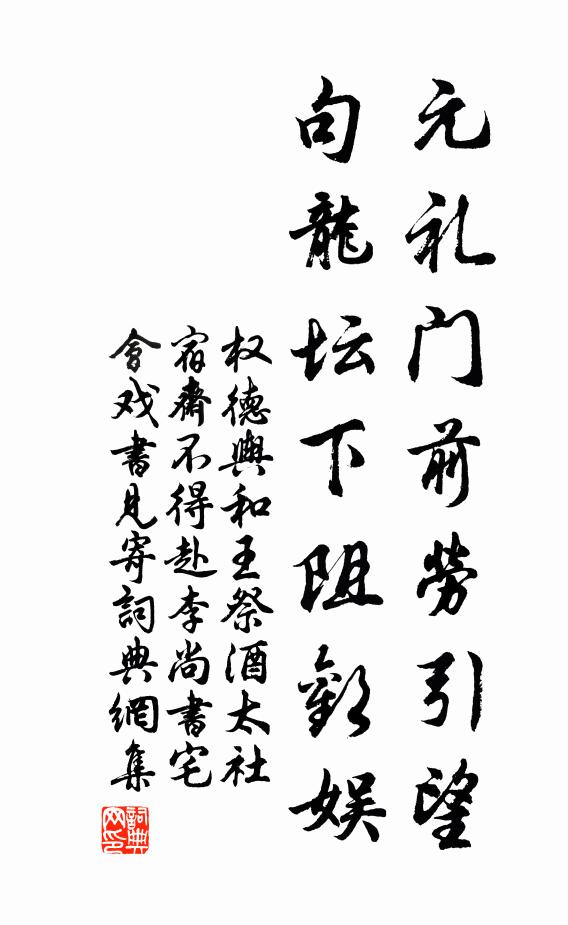 元礼门前勞引望
句龍坛下阻歡娱
权德輿和王祭酒太社
宿齋不得赴李尚書宅
會戏書見寄詞典網集
詞典网印